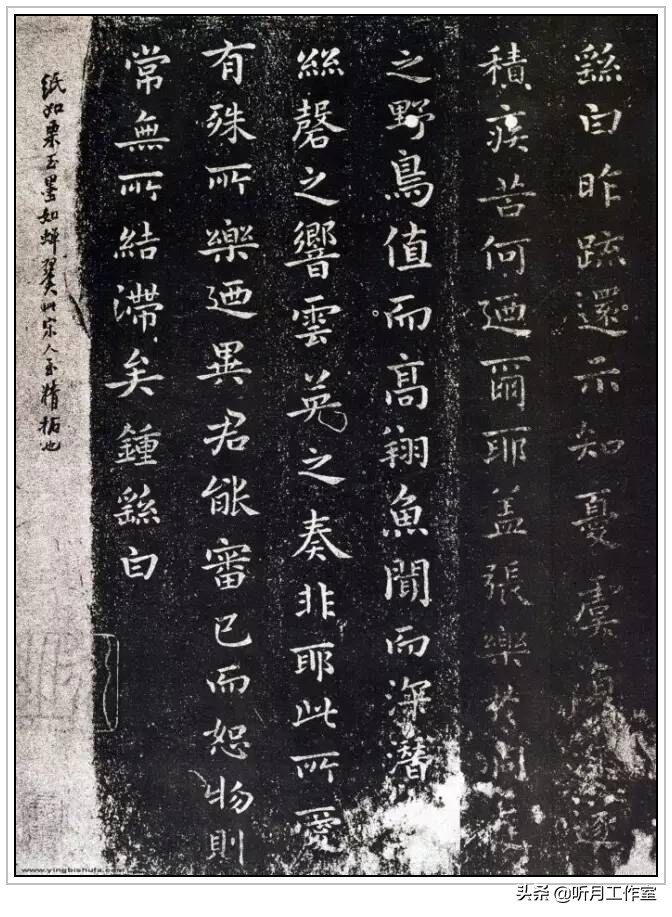 繇白昨踈還示知憂虞復深遂
積疾苦何迺爾耶盖張樂於洞庭
之野鳥值而高翔魚聞而深潛
絲磬之響雲英之奏非耶此所愛
有殊所樂迺異君能審己而恕物則
常無所結滯矣鍾繇白
紙如栗玉墨如蟬翼此宋人至精拓也
www.yingbishufa.com
头条 @听月工作室